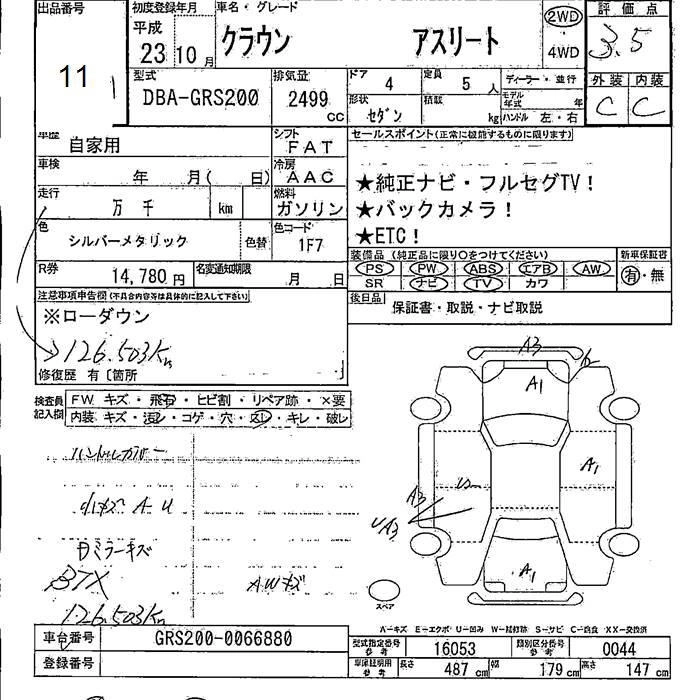 出品番号 初度登録年月 車名・グレード 評価点
平成 2WD
23 10月 クラウン アスリート 4WD 3.5
11
型式 排気量 ドア 4 定員 5人 ディーラー・並行 外装 内装
DBA-GRS200 2499 cc 形状 セダン 積載 kg モデル年式 年 C C
ハンドル 左・右
車歴 自家用 シフト FAT セールスポイント(正常に機能するものに限ります)
車検 年 月( 日) 冷房 AAC ★純正ナビ・フルセグTV!
走行 万 千 km 燃料 ガソリン ★バックカメラ!
色 シルバーメタリック 色替 色コード 1F7 ★ETC!
装備品 (純正品に限り○をつけてください) 新車保証書
R券 14,780円 名変通知期限 月 日 PS PW ABS エアB AW 有・無
SR ナビ TV カワ
注意事項申告欄(不具合内容等は具体的に記入して下さい) 後日品 保証書・取説・ナビ取説
※ローダウン
126.503Km
修復歴 有〔箇所 〕
検査員記入欄 FW キズ・飛石・ヒビ割・リペア跡・×要
内装 キズ・汚レ・コゲ・穴・凹レ・キレ・破レ
A3
A1
A1
A3
UA3
A1
A-U
Bミラーキズ
BTX AWキズ
126.503Km
スペア
A-キズ E-エクボ U-凹み W-補修跡 S-サビ C-腐食 XX-交換済
車台番号 GRS200-0066880 型式指定番号 参考 16053 類別区分番号 参考 0044
登録番号 車庫証明用 参考 長さ 487cm 幅 179cm 高さ 147cm